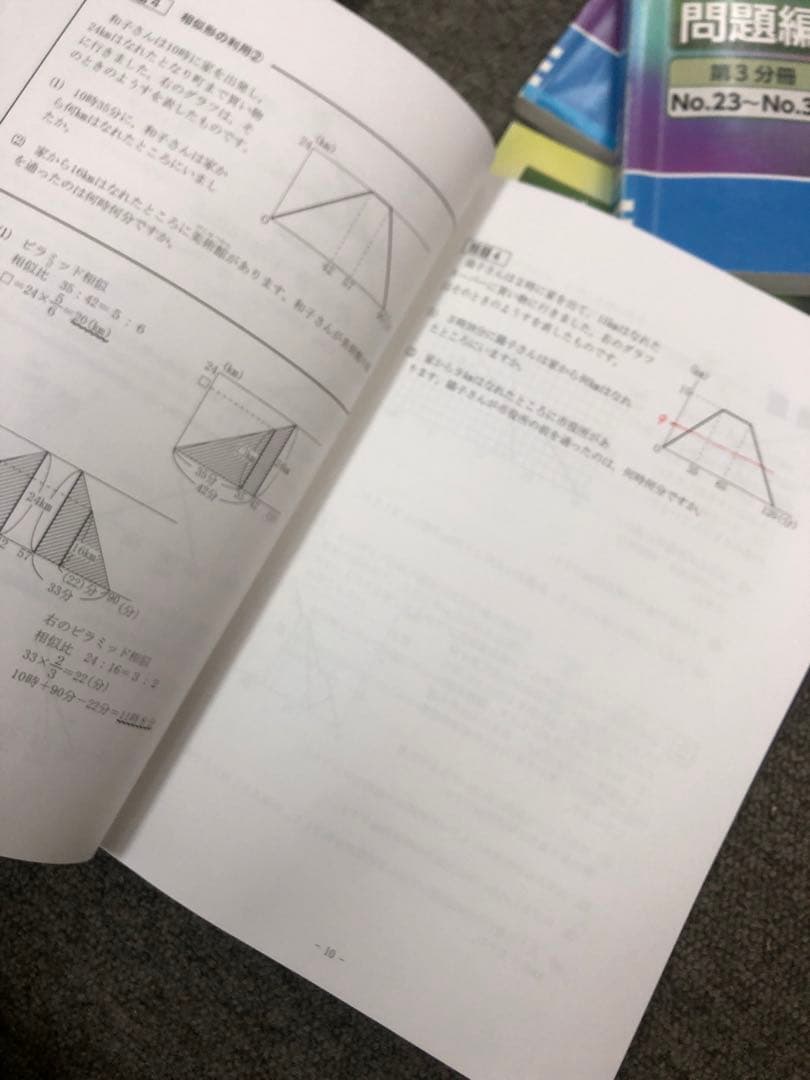 4 相似形の利用②
和子さんは10時に家を出発し,
24kmはなれたとなり町まで買い物
に行きました。右のグラフは,そ
のときのようすを表したものです。
(1) 10時35分に,和子さんは家か
ら何kmはなれたところにいまし
たか。
(2) 家から16kmはなれたところに美術館があります。和子さんが
を通ったのは何時何分ですか。
(km)
24
0
42
57
1)
ピラミッド相似
相似比 35:42=5:6
□=24×5/6=20(km)
(km)
24
□
35分
42分
24km
16km
57
(22)分
90(分)
33分
右のピラミッド相似
相似比 24:16=3:2
33×2/3=22(分)
10時+90分-22分=11時8分
例題4
子さんは2時に家を出て,12kmはなれた
に買い物に行きました。右のグラフ
はそのときのようすを表したものです。
子さんは家から何kmはなれ
たところにいますか。
家から9kmはなれたところに市役所があ
ります。陽子さんが市役所の前を通ったのは,何時何分ですか。
(km)
9
0
120(分)
- 10 -
問題編
第3分冊
No.23〜No.3